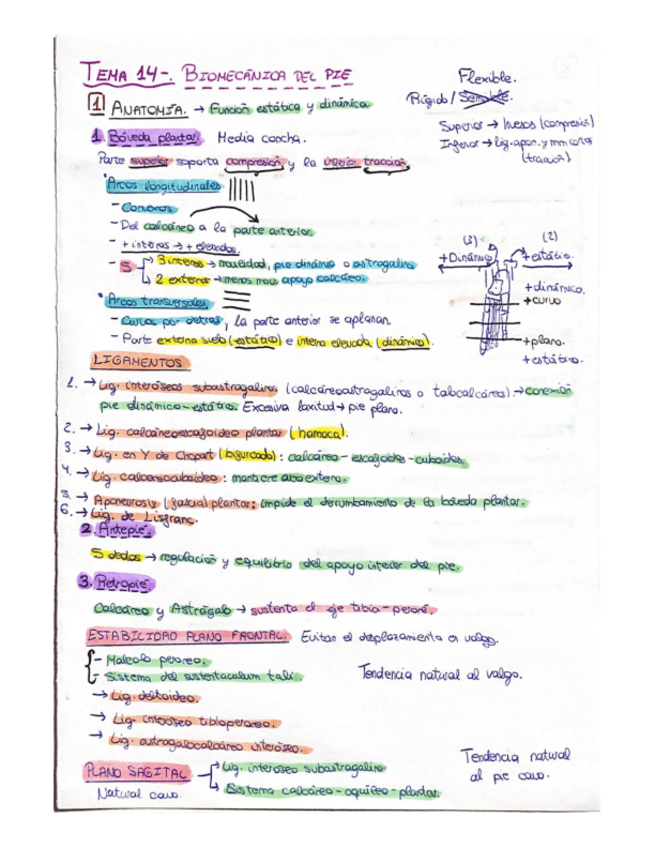 TEMA 14-. BIOMECÁNICA DEL PIE
Flexible.
Rígido / Sensible.
1 ANATOMÍA. → Función estática y dinámica
Superior → huesos (compresión)
Inferior → lig-apon. y mm cortos (tracción)
1. Bóveda plantar. Media concha.
Parte superior soporta compresión y la inferior tracción
· Arcos longitudinales
- Convexos
- Del calcáneo a la parte anterior
- + internos → + elevados.
- 5 → 3 internos → movilidad, pie dinámico o astragalino
→ 2 externos → menos mov. apoyo calcáneo.
(3) (2)
+Dinámico +estático.
+dinámico.
+curvo
+plano.
+estático.
· Arcos transversales
- Curvos por detrás, la parte anterior se aplanan.
- Parte externa suelo (estático) e interna elevada (dinámico).
LIGAMENTOS
1. → Lig. interóseos subastragalinos (calcáneoastragalinos o talocalcáneo) → conexión
pie dinámico-estático. Excesiva laxitud → pie plano.
2. → Lig. calcáneoescafoideo plantar (hamaca).
3. → Lig. en Y de Chopart (bifurcado): calcáneo-escafoides-cuboides.
4. → Lig. calcaneocuboideo: mantiene arco externo.
5. → Aponeurosis (fascia) plantar: impide el derrumbamiento de la bóveda plantar.
6. → Lig. de Lisfranc.
2. Antepié.
5 dedos → regulación y equilibrio del apoyo interior del pie.
3. Retropié
Calcáneo y Astrágalo → sustenta el eje tibia-peroné.
ESTABILIDAD PLANO FRONTAL. Evitan el desplazamiento en valgo.
- Maleolo peroneo.
- Sistema del sustentaculum tali.
Tendencia natural al valgo.
→ Lig. deltoideo.
→ Lig. interóseo tibioperoneo.
→ Lig. astragalocalcáneo interóseo.
PLANO SAGITAL → Lig. interóseo subastragalino
Natural cavo. → Sistema calcáneo-aquíleo-plantar.
Tendencia natural
al pie cavo.